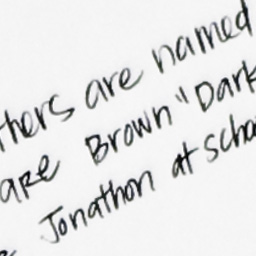 thers are named
are Brown "Dark
Jonathon at scho